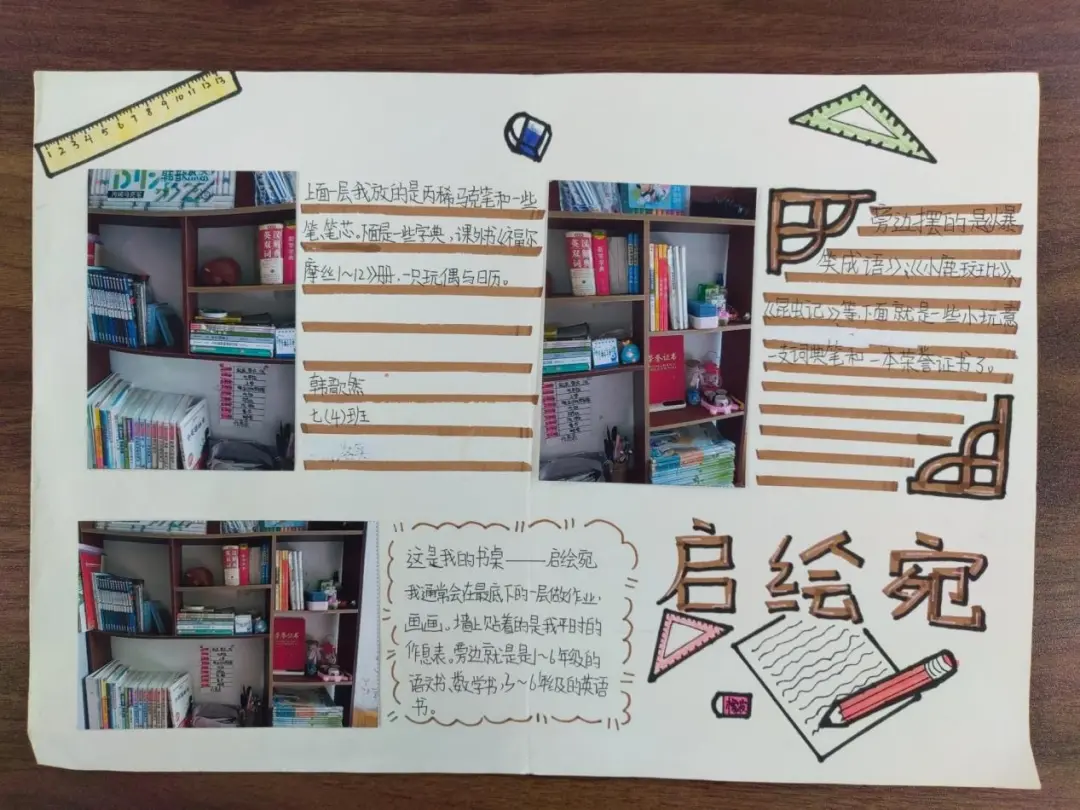 1 2 3 4 5 6 7 8 9 10 11 12 13
上面一层我放的是丙稀马克笔和一些
笔,笔芯。下面是一些字典,课外书《福尔
摩丝1~12》册.一只玩偶与日历。
韩歆然
七(4)班
旁边摆的是《爆
笑成语》,《小鹿斑比》,
《昆虫记》等,下面就是一些小玩意
一支词典笔和一本荣誉证书了。
这是我的书桌——启绘宛
我通常会在最底下的一层做作业,
画画。墙上贴着的是我平时的
作息表。旁边就是是1~6年级的
语文书、数学书,3~6年级的英语
书。
启绘宛
橡皮
荣誉证书